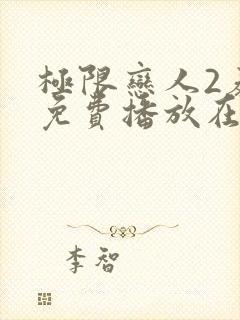 極限戀人2
免費播放在
李智